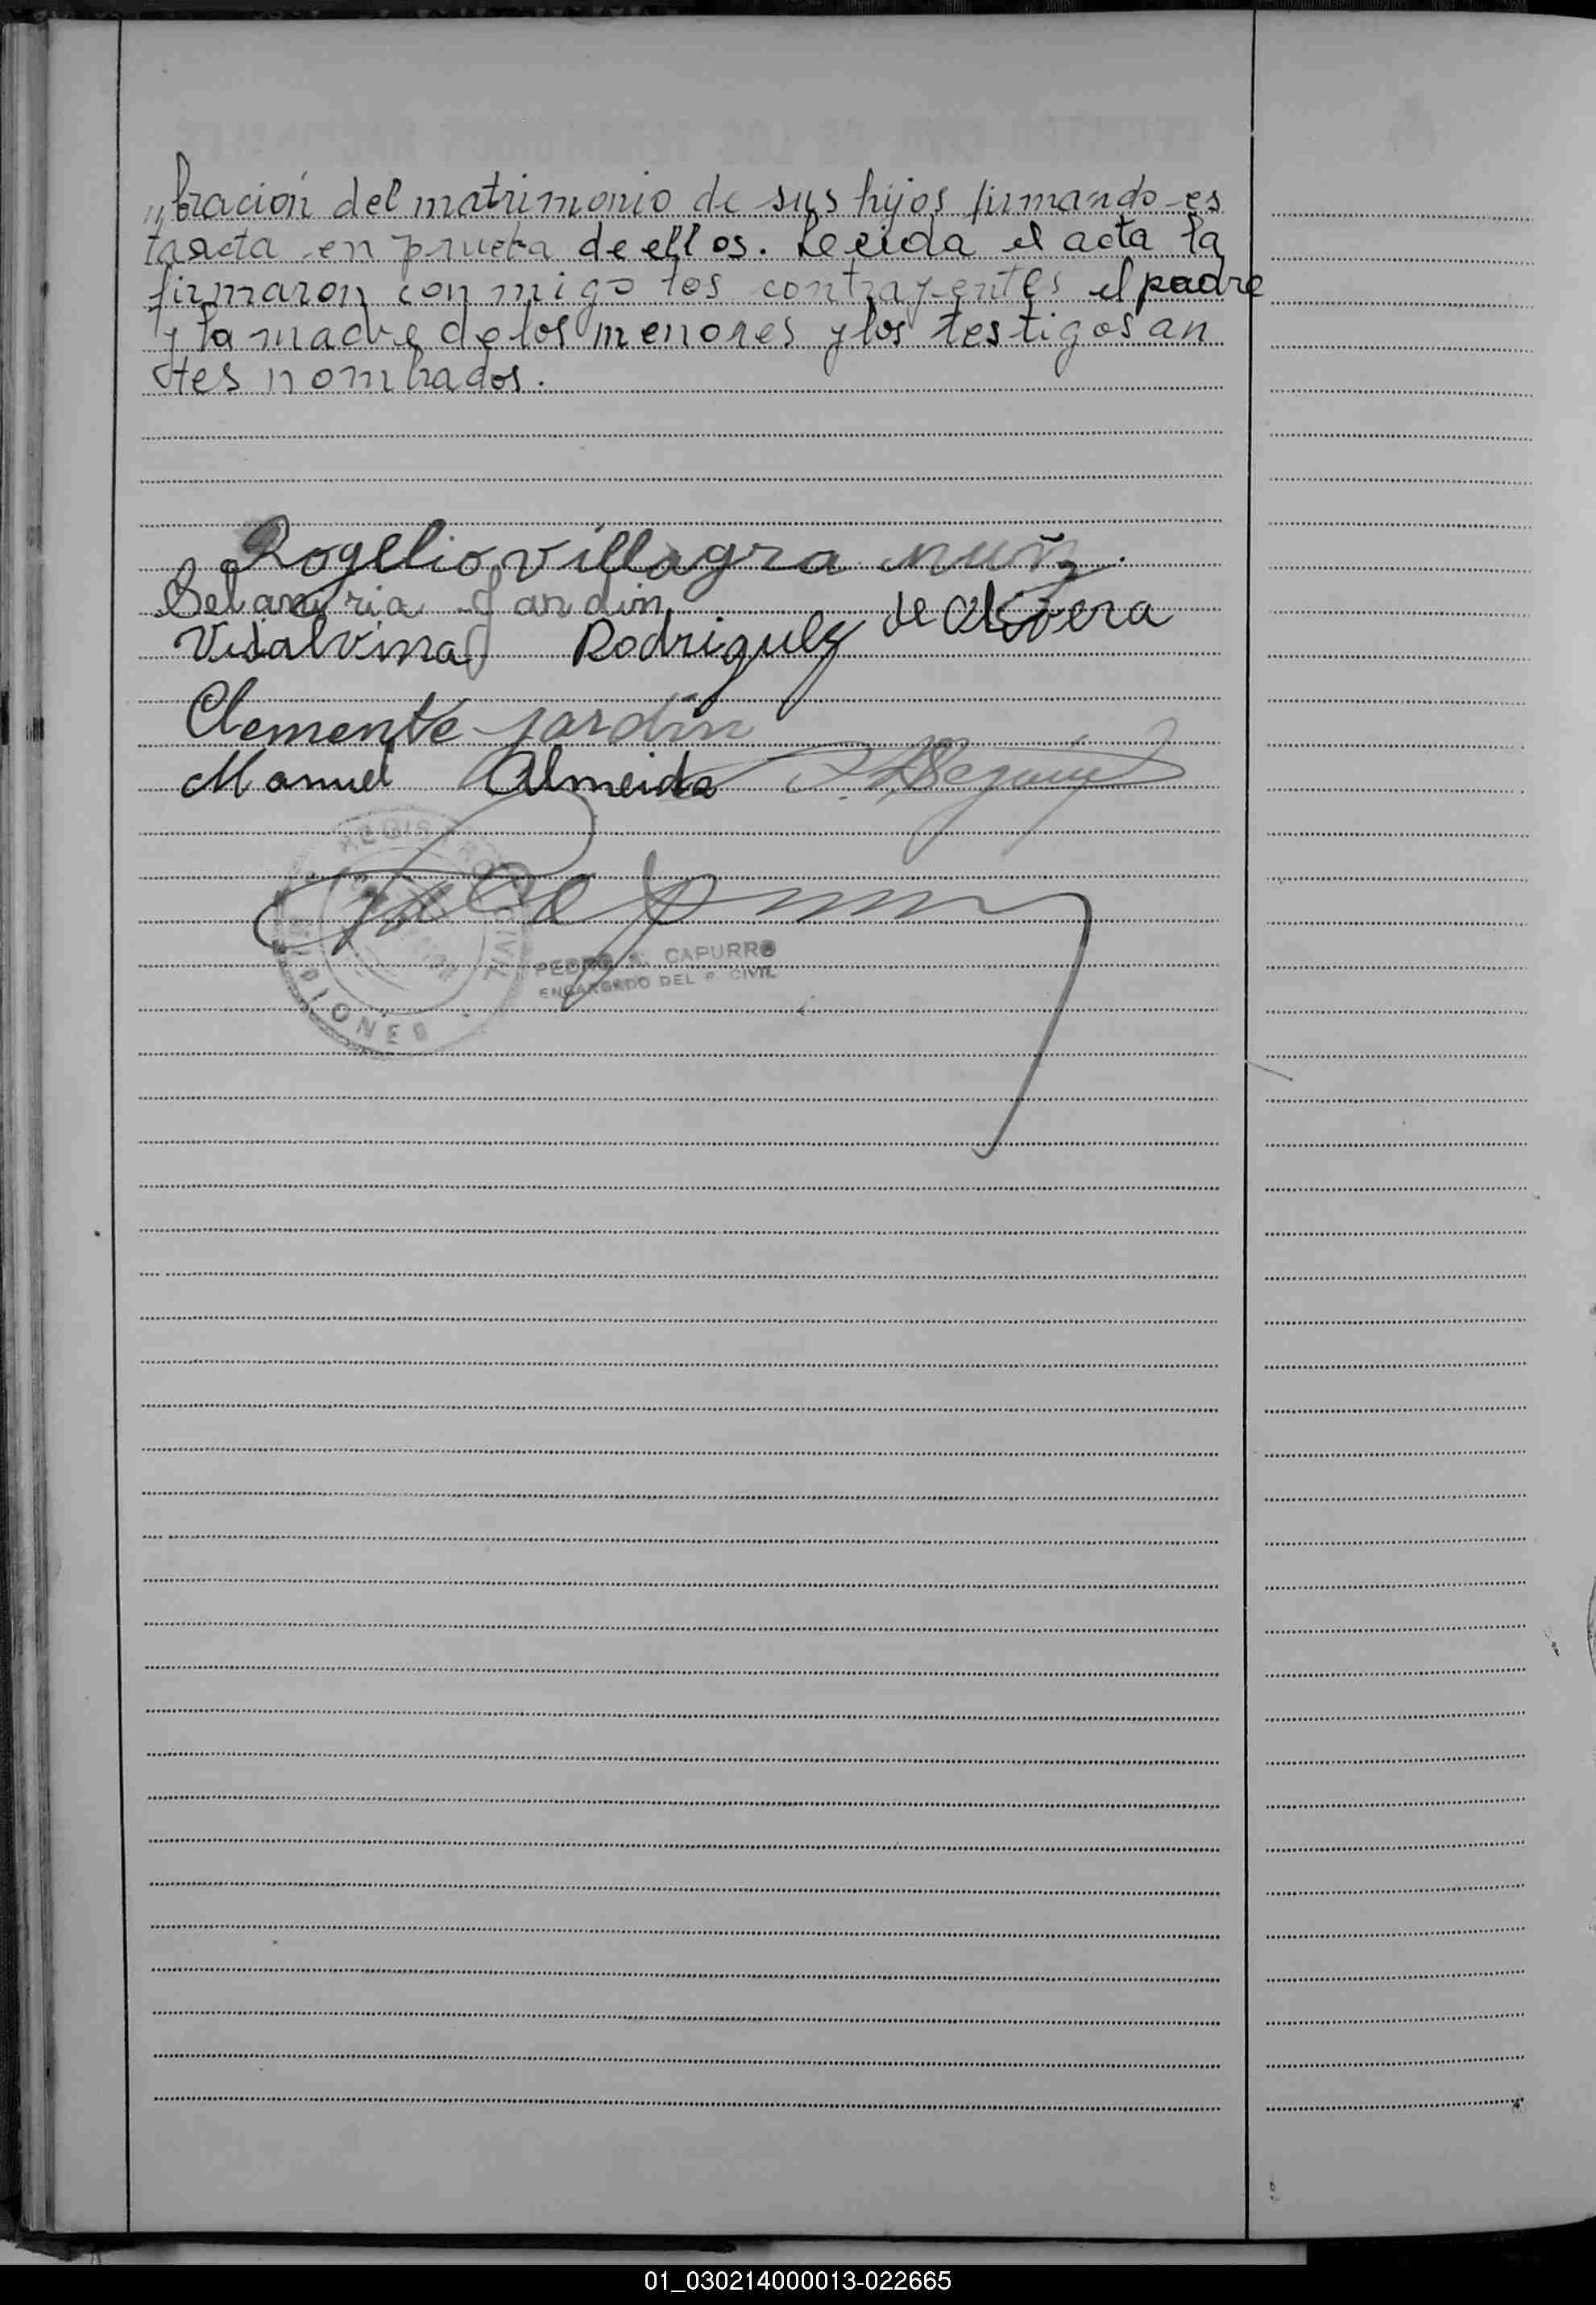 „bración del matrimonio de sus hijos firmando es
ta acta en prueba de ellos. Leeida el acta la
firmaron con migo los contrayentes el padre
y la madre de los menores y los testigos an
tes nombrados.
Rogelio villagra muñz.
Jardin
Vidalvina Rodriguez de Olivera
Clemente jardín
Manuel Almeida
REGISTRO CIVIL
MISIONES
PEDRO A. CAPURRO
ENCARGADO DEL R. CIVIL
01_030214000013-022665